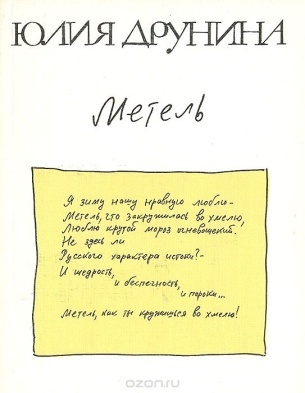 ЮЛИЯ ДРУНИНА
Метель
Я зиму нашу нравную люблю -
Метель, что закружилась во хмелю,
Люблю крутой мороз огневощекий.
Не здесь ли
Русского характера истоки? -
И щедрость,
и беспечность,
и пороки...
Метель, как ты кружишься во хмелю!
ozon.ru